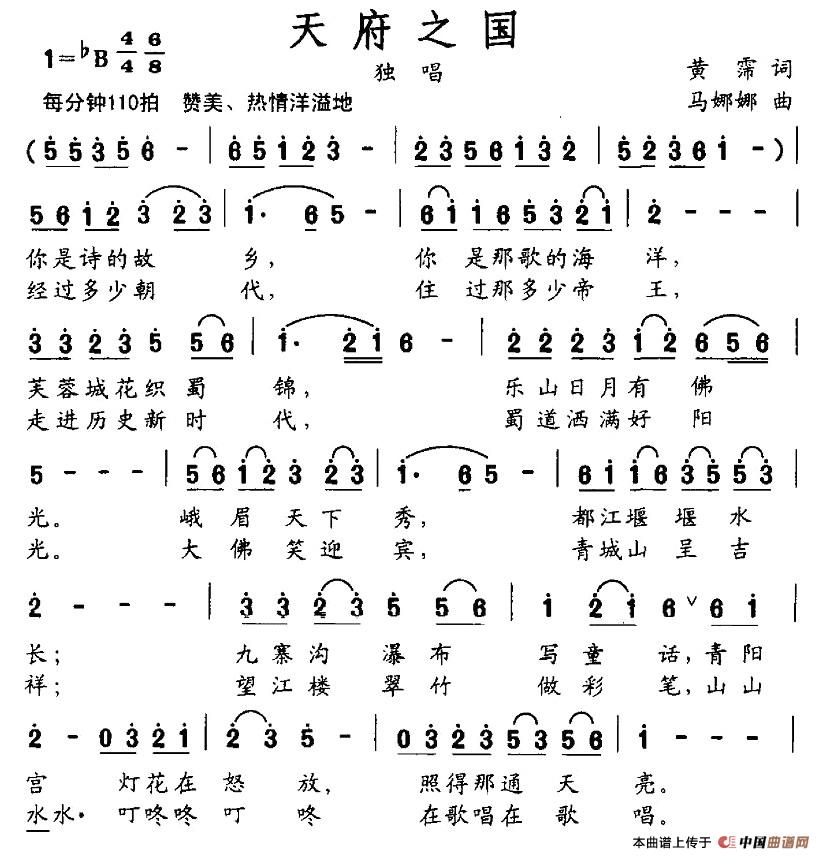 天府之国
1=♭B 4/4 6/8
独 唱
黄霈 词
每分钟110拍 赞美、热情洋溢地
马娜娜 曲
(5 5 3 5 6 - | 6 5 1 2 3 - | 2 3 5 6 1 3 2 | 5 2 3 6 1 - ) |
5 6 1 2 3 2 3 | 1· 6 5 - | 6 1 1 6 5 3 2 1 | 2 - - - |
你是诗的故 乡, 你 是那歌的海 洋,
经过多少朝 代, 住 过那多少帝 王,
3 3 2 3 5 5 6 | 1· 2 1 6 - | 2 2 2 3 1 2 6 5 6 |
芙蓉城花织 蜀 锦, 乐山日月有 佛
走进历史新 时 代, 蜀道洒满好 阳
5 - - - | 5 6 1 2 3 2 3 | 1· 6 5 - | 6 1 1 6 3 5 5 3 |
光。 峨 眉 天 下 秀, 都江堰 堰 水
光。 大 佛 笑 迎 宾, 青城山 呈 吉
2 - - - | 3 3 2 3 5 5 6 | 1 2 1 6 ∨ 6 1 |
长; 九寨沟 瀑 布 写 童 话,青阳
祥; 望江楼 翠 竹 做 彩 笔,山山
2 - 0 3 2 1 | 2 3 5 - | 0 3 2 3 5 3 5 6 | 1 - - - |
宫 灯花在 怒 放, 照得那通 天 亮。
水水· 叮咚咚 叮 咚 在歌唱在 歌 唱。
本曲谱上传于 中国曲谱网